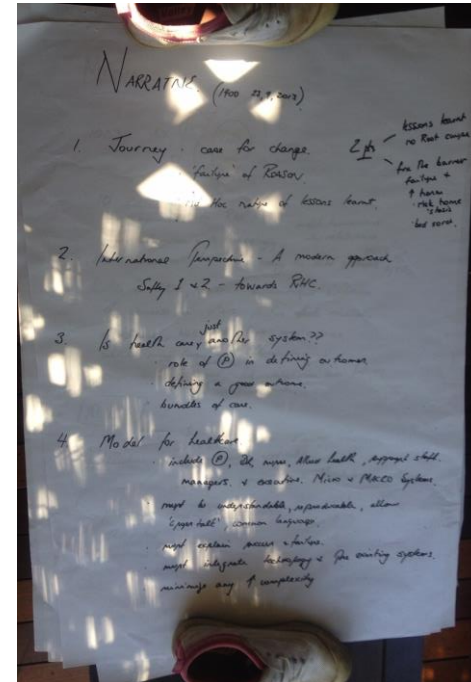 NARRATIVE. (1900 22, 9, 2013)
1. Journey · case for change.
· 'failure' of REASON
· Ad Hoc nature of lessons learnt.
lessons learnt
no Root cause
fix the barrier
failure +
↑ harm
· risk homeo
stasis
2. International Perspective - A modern approach
Safety 1 & 2 - towards RHC.
just
3. Is health care, another system??
· role of (P) in defining outcomes
· defining a good outcome.
· bundles of care.
4. Model for healthcare.
· include (P), Dr, nurses, Allied health, support staff
managers, & executive. Micro & MACRO Systems.
· must be understandable, reproduceable, allow
'cross talk', common language.
· must explain success & failure.
· must integrate technology & the existing systems.
· minimize any ↑ complexity